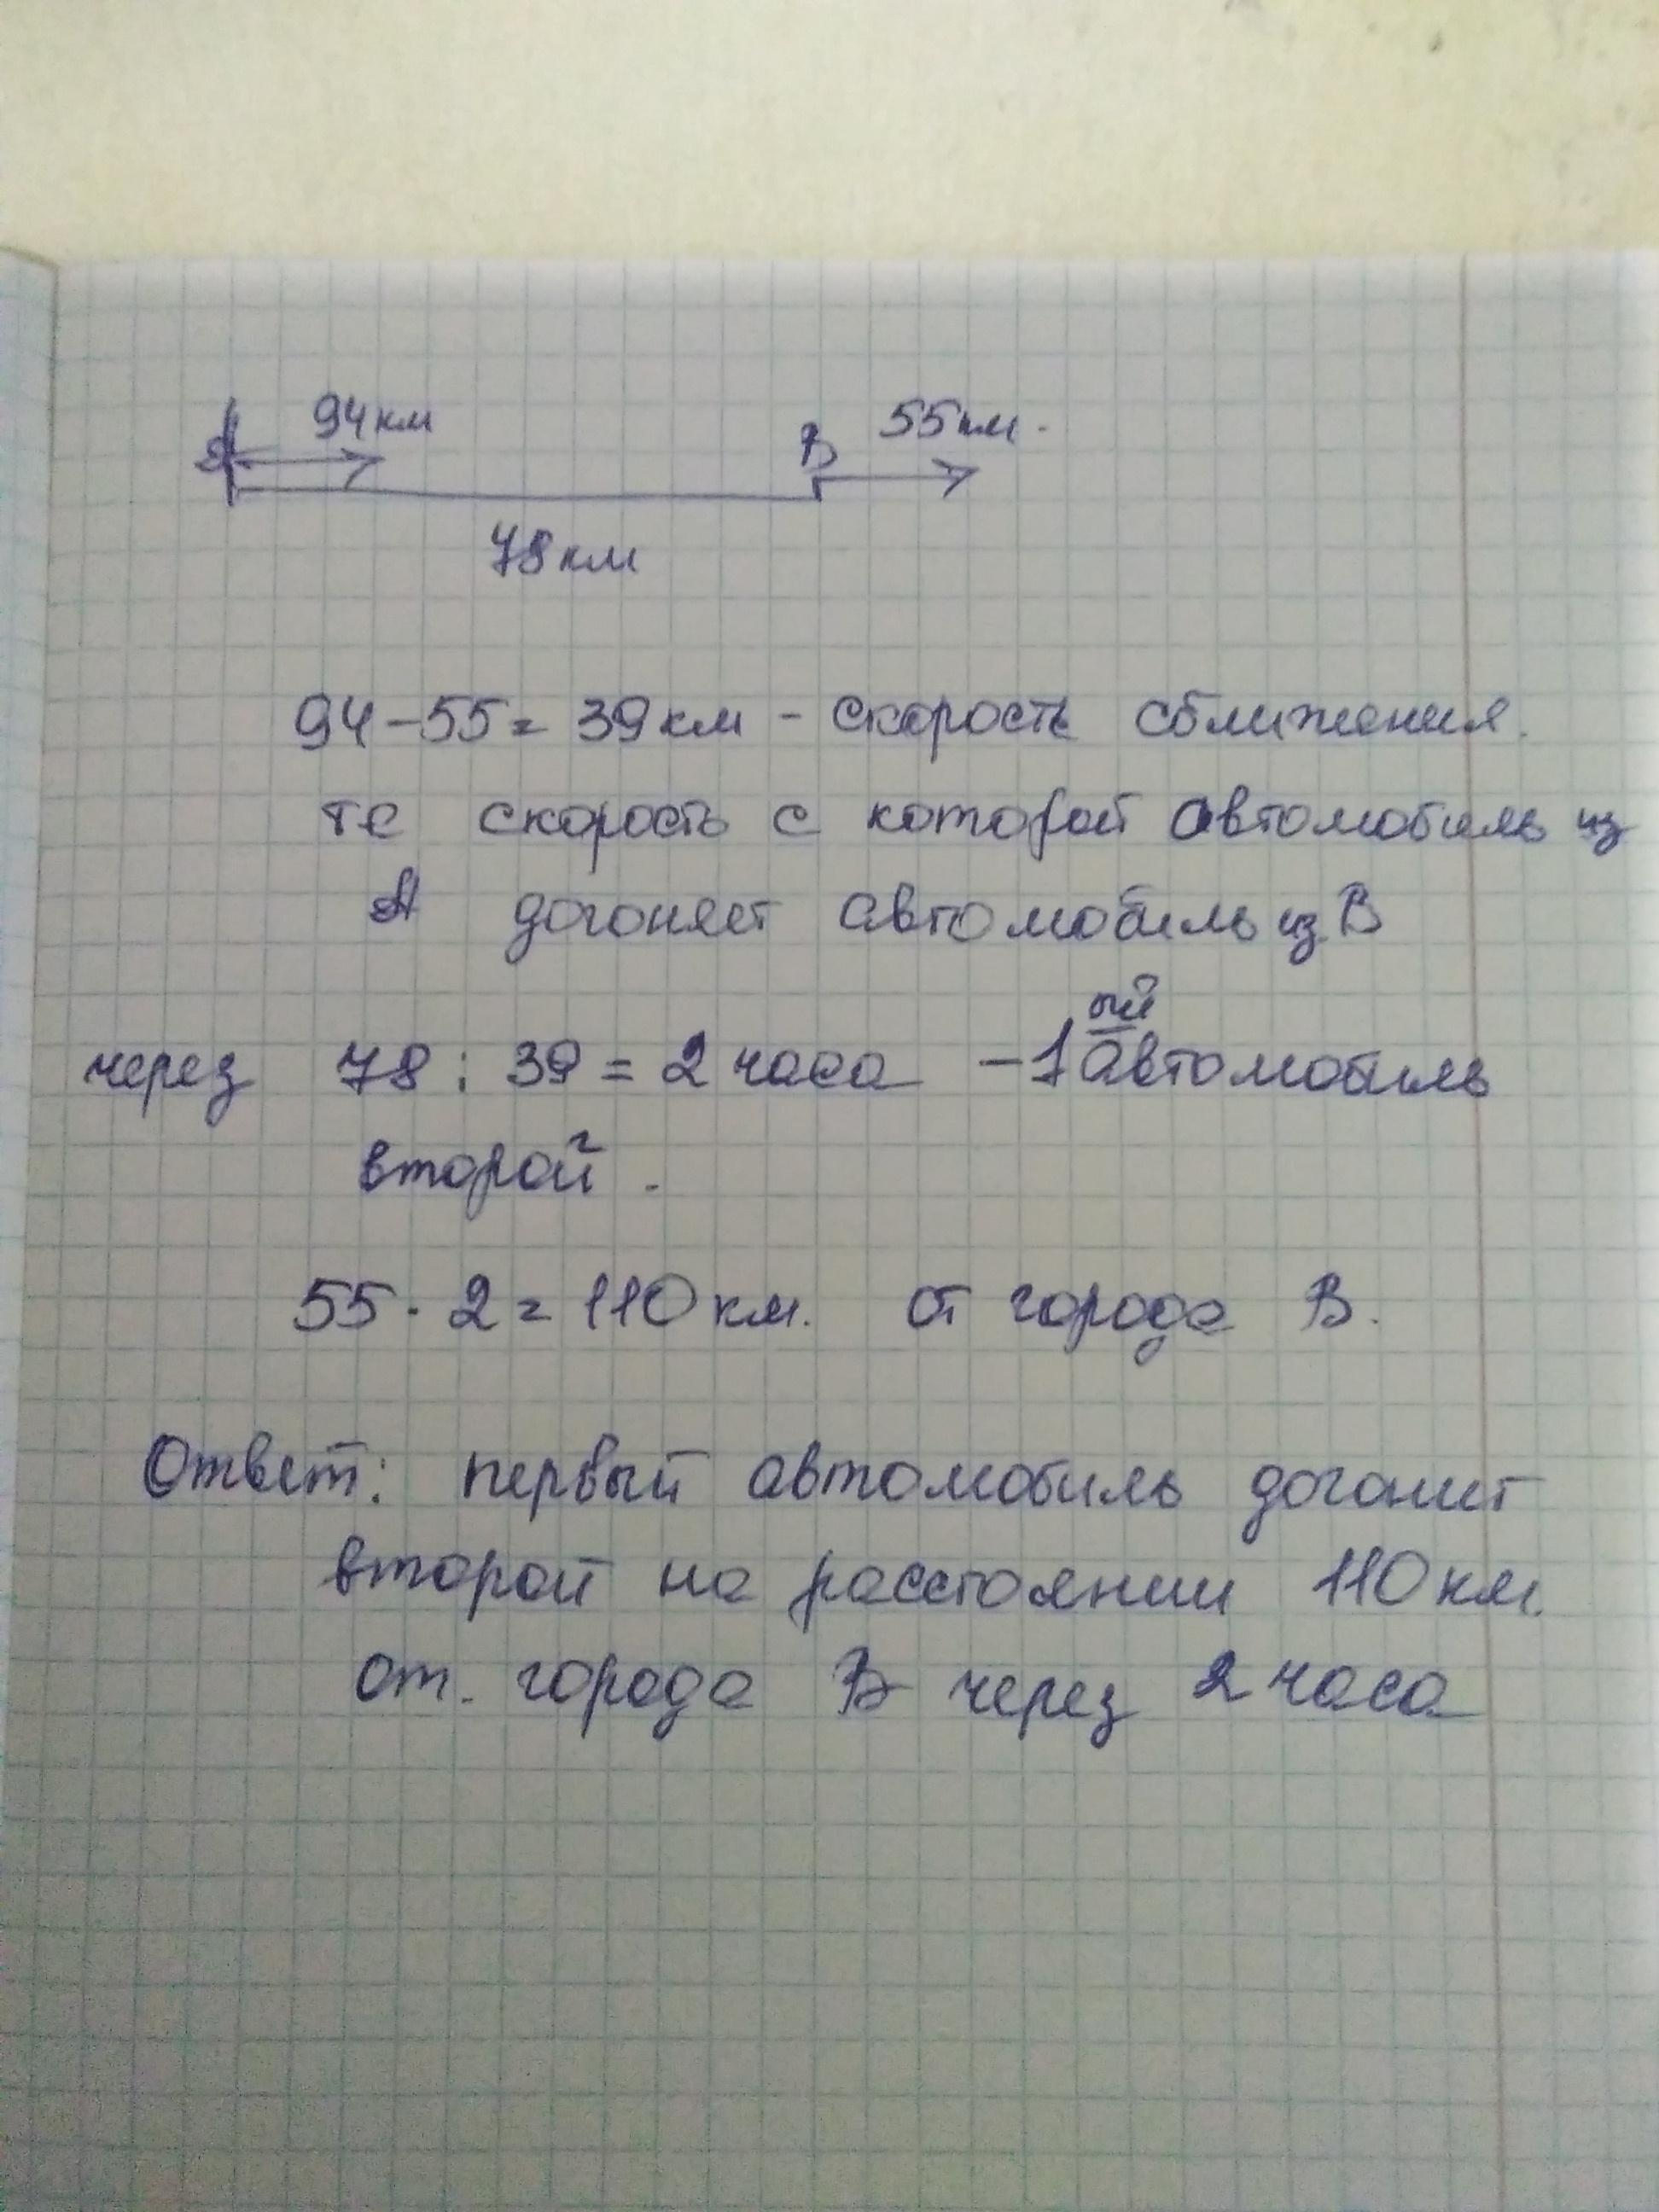 94 км
55 км.
А
В
78 км
94 – 55 = 39 км – скорость сближения.
те скорость с которой автомобиль из
А догоняет автомобиль из В
через 78 : 39 = 2 часа – 1ый автомобиль
второй.
55 · 2 = 110 км. от города В.
Ответ: первый автомобиль догонит
второй на расстоянии 110 км.
от. города В через 2 часа